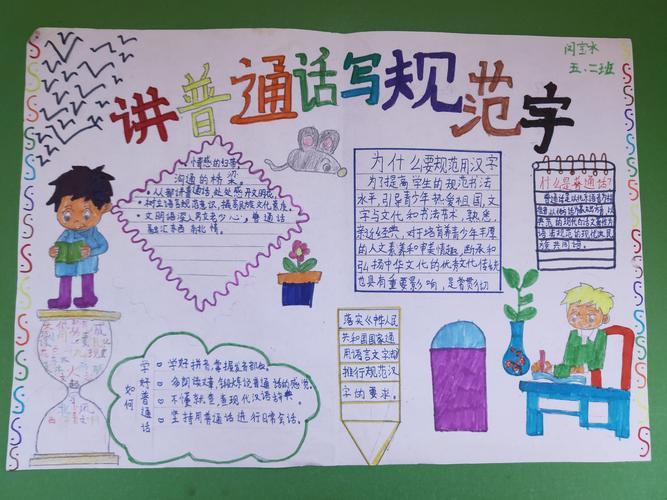 讲普通话写规范字
闵宝水
五、二班
情感的纽带
沟通的桥梁。
从部讲普通话,处处感开文明花。
树立语言规范意识,提高民族文化素度。
文明语深入男女老少心,普通话
融汇东西南北情。
为什么要规范用汉字
为了提高学生的规范书法
水平,引导青少年热爱祖国,文
字与文化和书法艺术,熟悉,
亲近经典,对于培育青少年丰厚
的人文素养和审美情趣,断承和
弘扬中华文化的优秀文化传统
也具有重要影响,是普贯彻
落实《中华人民
共和国国家通
用语言文字法》
推行规范汉
字的要求。
什么是普通话?
普通话是以北京语音为标
族共同语。
如何
学好普通话
学好拼音,掌握发音部位。
多朗读文章,锻炼说普通话的感觉。
不懂就查查现代汉语辞典。
坚持用普通话进行日常会话。